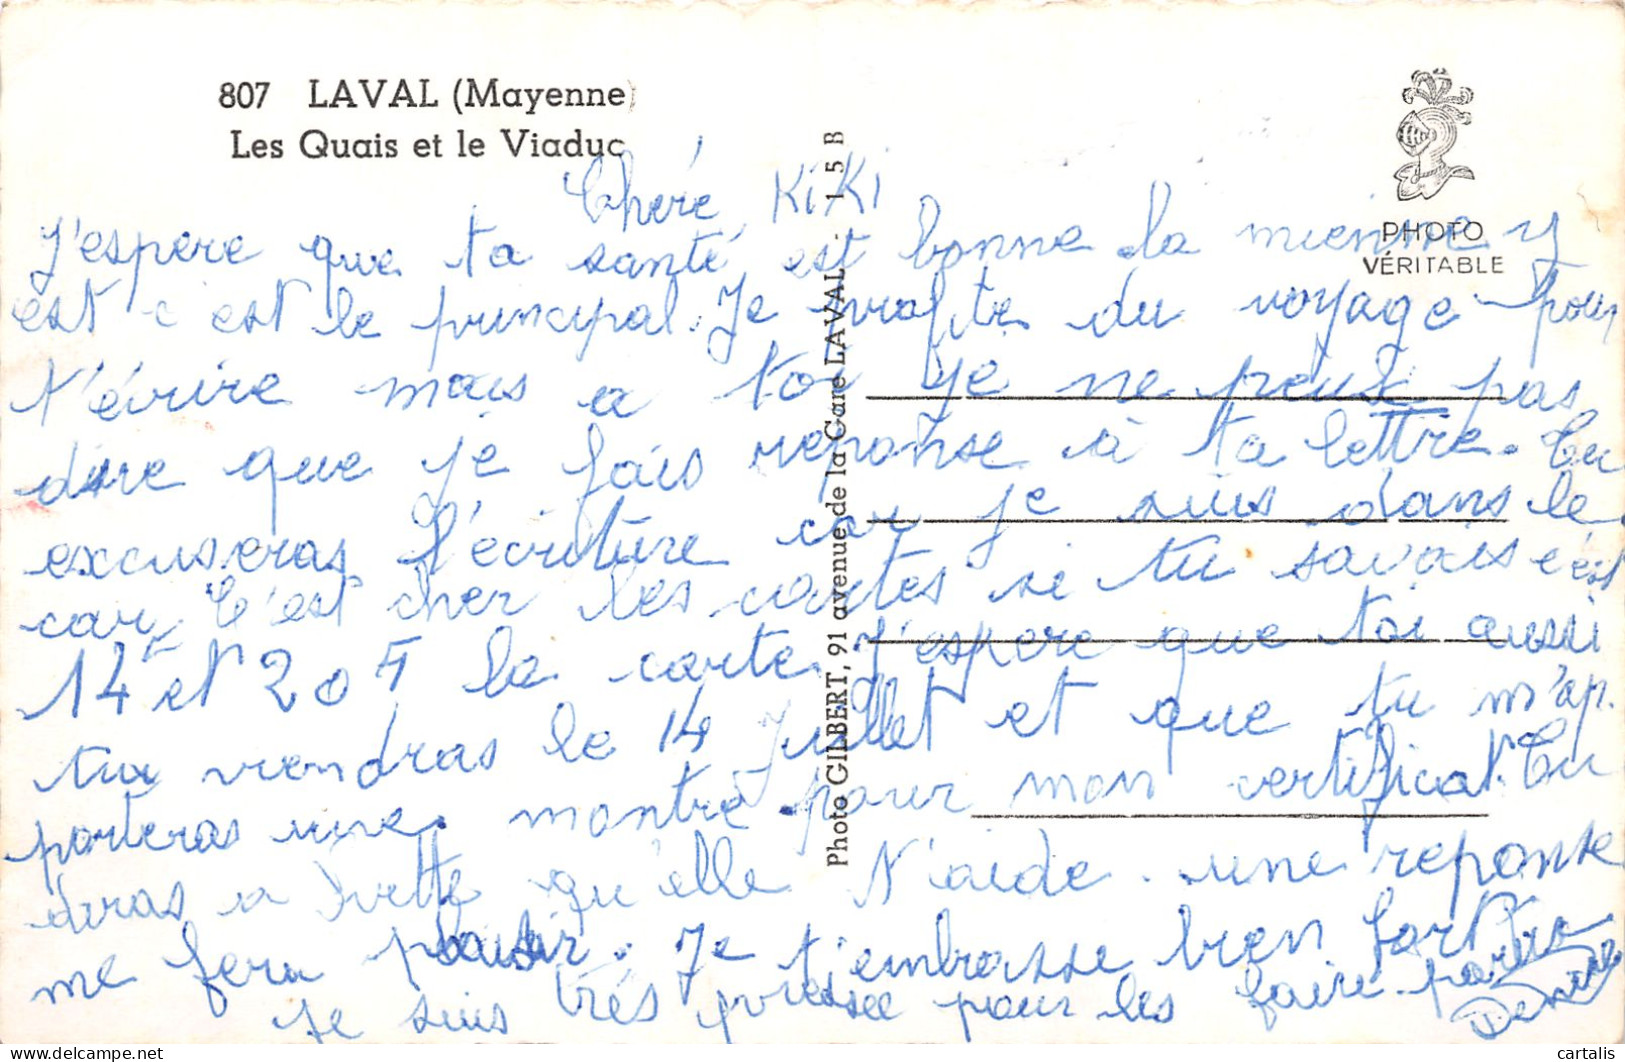 807 LAVAL (Mayenne)
Les Quais et le Viaduc
PHOTO
VÉRITABLE
Photo GILBERT, 91 avenue de la Gare LAVAL - 1 5 B
Cheré KiKi
J'espere que ta santé est bonne la mienne y
est c'est le principal. Je profite du voyage pour
t'écrire mais a toi je ne peux pas
dire que je fais reponse à ta lettre. Tu
excuseras l'écriture car je suis dans le
car. C'est cher les cartes si tu savais c'est
14 et 20 F la carte. J'espere que toi aussi
tu viendras le 14 Juillet et que tu m'ap.
porteras une montre pour mon certificat. Tu
diras a Yvette qu'elle t'aide. une reponse
me fera plaisir. Je t'embrasse bien fort
Je suis trés pressée pour les faire partir
cartalis